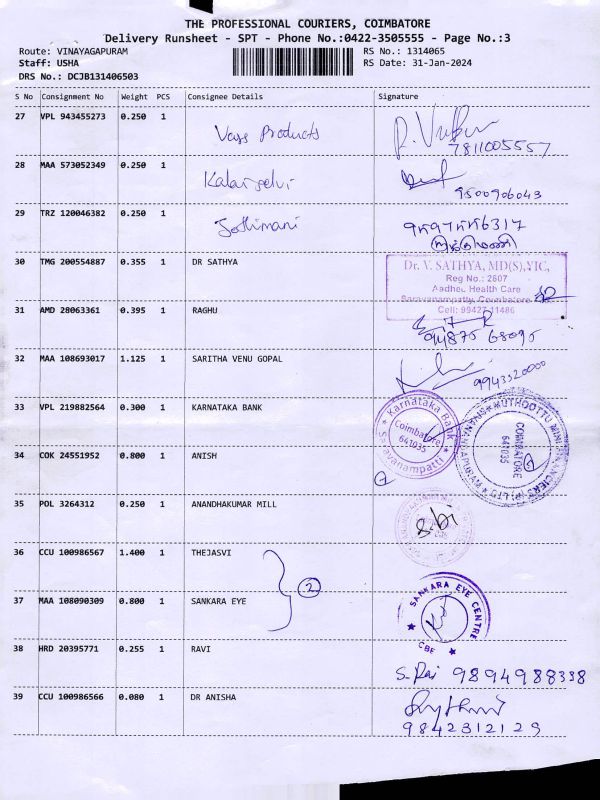 THE PROFESSIONAL COURIERS, COIMBATORE
Delivery Runsheet - SPT - Phone No.:0422-3505555 - Page No.:3
Route: VINAYAGAPURAM RS No.: 1314065
Staff: USHA RS Date: 31-Jan-2024
DRS No.: DCJB131406503
S No Consignment No Weight PCS Consignee Details Signature
27 VPL 943455273 0.250 1 Products
7811005557
28 MAA 573052349 0.250 1 Kalaiselvi
9500906043
29 TRZ 120046382 0.250 1 Jothimani
30 TMG 200554887 0.355 1 DR SATHYA
Dr. V. SATHYA, MD(S),YIC,
Reg No.: 2607
Aadhel Health Care
Saravanampatty, Coimbatore
Cell: 99427 11486
31 AMD 28063361 0.395 1 RAGHU
94875 68095
32 MAA 108693017 1.125 1 SARITHA VENU GOPAL
9943520000
33 VPL 219882564 0.300 1 KARNATAKA BANK
Karnataka Bank
Coimbatore
641035
Saravanampatti
34 COK 24551952 0.800 1 ANISH
MUTHOOTTU MINI FINANCIERS (P) LTD
COIMBATORE
641035
35 POL 3264312 0.250 1 ANANDHAKUMAR MILL
sbi
36 CCU 100986567 1.400 1 THEJASVI
2
37 MAA 108090309 0.800 1 SANKARA EYE
SANKARA EYE CENTRE
CBE
38 HRD 20395771 0.255 1 RAVI
9894988338
39 CCU 100986566 0.080 1 DR ANISHA
9842312129